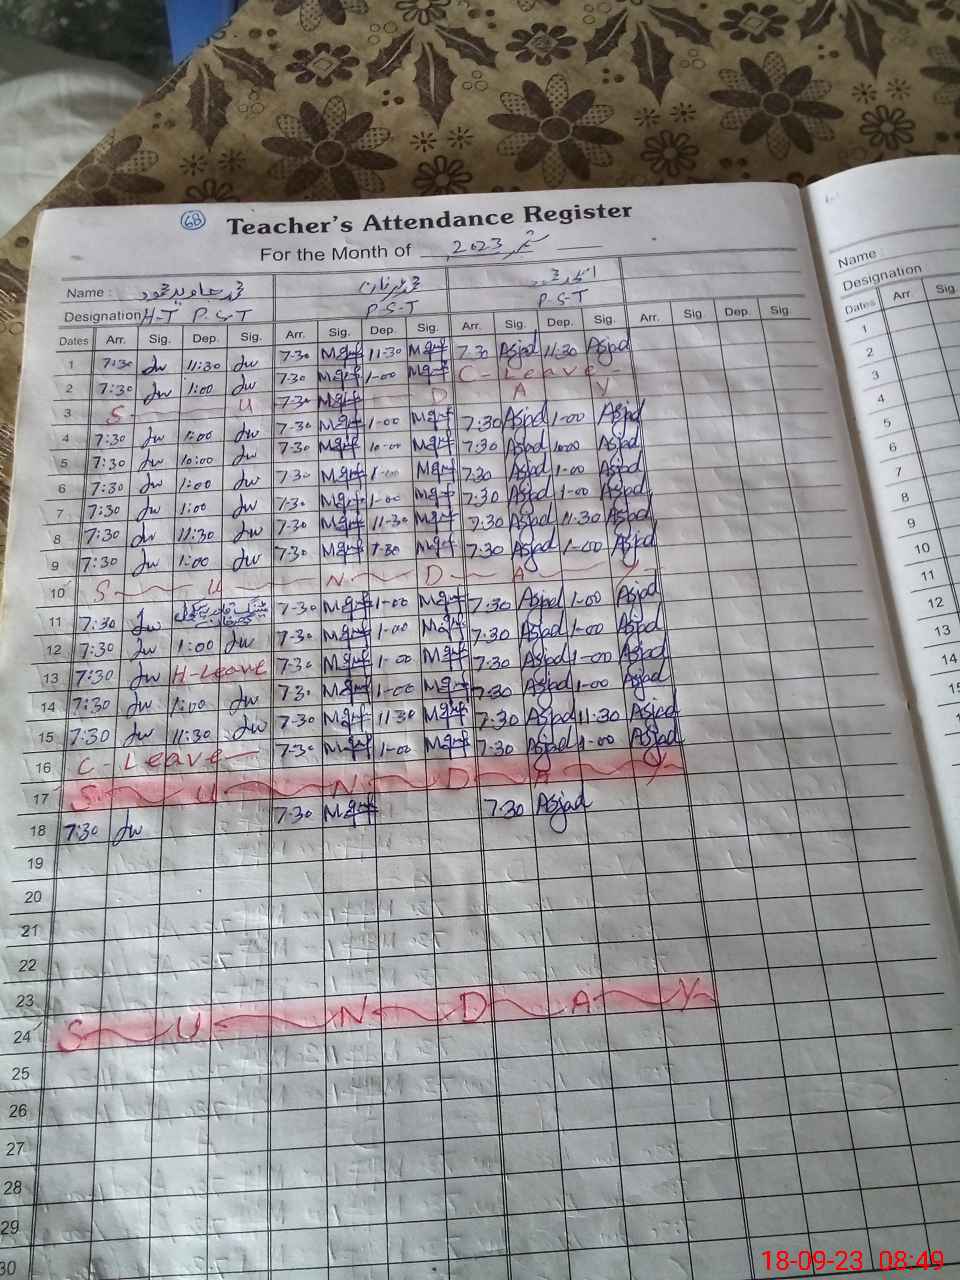 68
Teacher's Attendance Register
For the Month of ستمبر 2023
Name : محمد جاوید محمود
Designation H-T P-S-T P-S-T P-S-T
Dates Arr. Sig. Dep. Sig. Arr. Sig. Dep. Sig. Arr. Sig. Dep. Sig. Arr. Sig. Dep. Sig.
1 7:30 11:30 7-30 11-30 7:30 Asjad 11:30 Asjad
2 7:30 1:00 7-30 1-00 C-Leave-
3 S U 7-30 D A Y
4 7:30 1:00 7-30 1-00 7:30 Asjad 1-00 Asjad
5 7:30 10:00 7-30 10-00 7:30 Asjad 10:00 Asjad
6 7:30 1:00 7-30 1-00 7:30 Asjad 1-00 Asjad
7 7:30 1:00 7-30 1-00 7:30 Asjad 1-00 Asjad
8 7:30 11:30 7-30 11-30 7:30 Asjad 11:30 Asjad
9 7:30 1:00 7-30 7:30 Asjad 1-00 Asjad
10 S U N D A Y
11 7:30 7-30 1-00 7:30 Asjad 1-00 Asjad
12 7:30 1:00 7-30 1-00 7:30 Asjad 1-00 Asjad
13 7:30 H-Leave 7-30 1-00 7:30 Asjad 1-00 Asjad
14 7:30 1:00 7-30 1-00 7:30 Asjad 1-00 Asjad
15 7:30 11:30 7-30 11-30 7:30 Asjad 11:30 Asjad
16 C-Leave- 7-30 1-00 7:30 Asjad 1-00 Asjad
17 S U N D A Y
18 7:30 7-30 7:30 Asjad
19
20
21
22
23
24 S U N D A Y
25
26
27
28
29
30
Name :
Designation
Dates Arr. Sig.
1
2
3
4
5
6
7
8
9
10
11
12
13
14
15
16
18-09-23 08:49